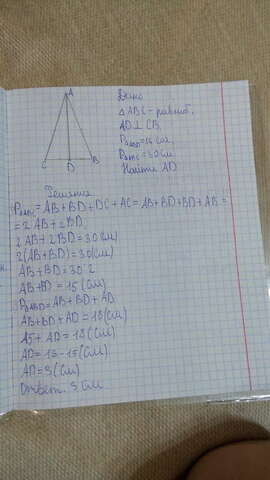 A
C
D
B
Дано
△ABC - равноб.
AD⊥CB
P =18 см,
P =30 см
Найти AD
Решение
P = AB+BD+DC+AC= AB+BD+BD+AB =
= 2AB+2BD
2AB+2BD=30(см)
2(AB+BD)=30(см)
AB+BD=30:2
AB+BD = 15(см)
P =AB+BD+AD
AB+BD+AD =18(см)
15+AD=18(см)
AD=18-15(см)
AD=3(см)
Ответ: 3 см